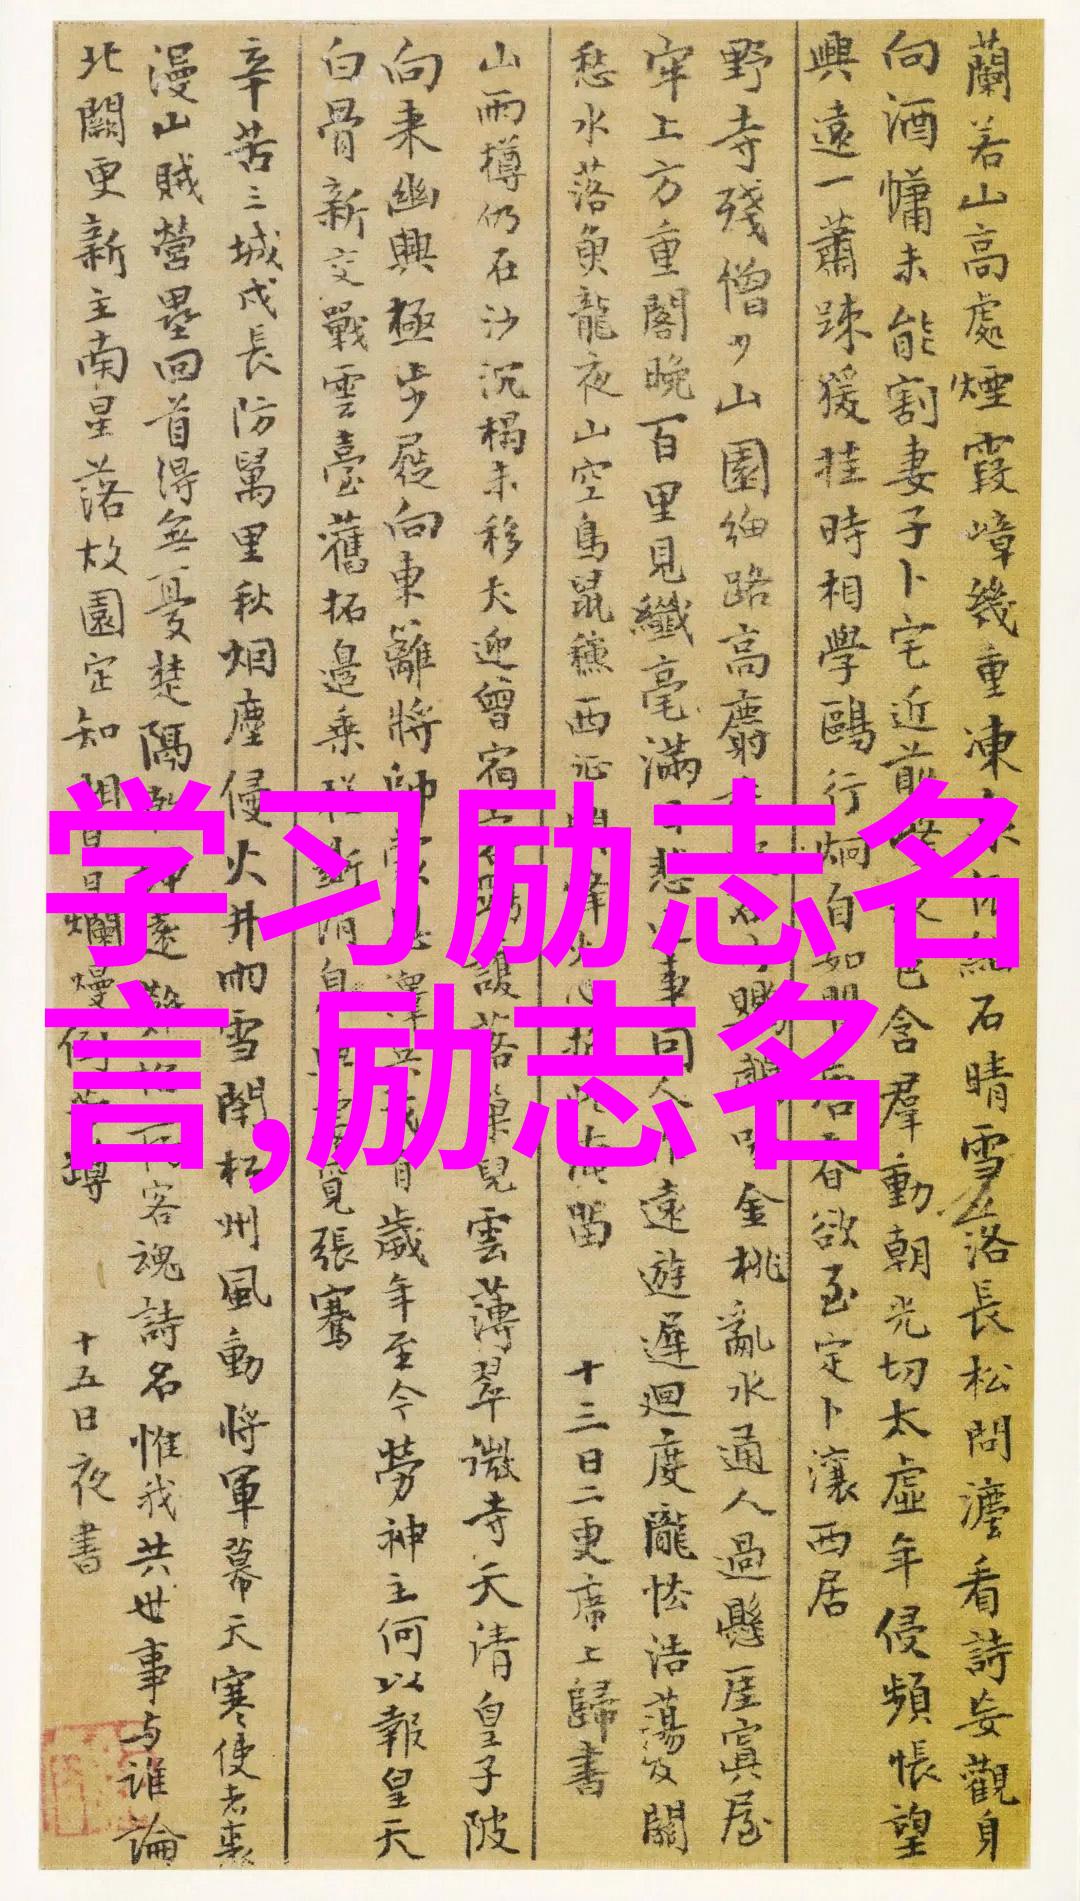 蘭若山高處煙霞嶂幾重凍
石晴雪落長松問灋看詩妄觀身
向酒慵未能割妻子卜宅近前
含羣動朝光切太虛年侵頻悵望
興遠一蕭踈猨挂時相學鷗行炯自如
春欲至定卜瀼西居
野寺殘僧少山園細路高麝
金桃亂水通人過懸厓寘屋
牢上方重閣晚百里見纖毫滿
悲
事同人
遠遊遲迴度隴怯浩蕩及關
愁水落魚龍夜山空鳥鼠穐西征
留
十三日二更席上歸書
山雨樽仍在沙沉榻未移犬迎曾宿
護落巢兒雲薄翠微寺天清皇子陂
向來幽興極步屧向東籬將帥蒙
歲年至今勞神主何以報皇天
白骨新交戰雲臺舊拓邉乗
斷消息
覓張騫
辛苦三城戍長防萬里秋烟塵侵火井雨雪閇松州風動將軍幕天寒使者裘
漫山賊營壘回首得無憂楚隔
遠
客魂詩名惟我共世事与誰論
北闕更新主南星落故園定知相
爛熳倒芳罇
十五日夜書
学习励志名
言,励志名